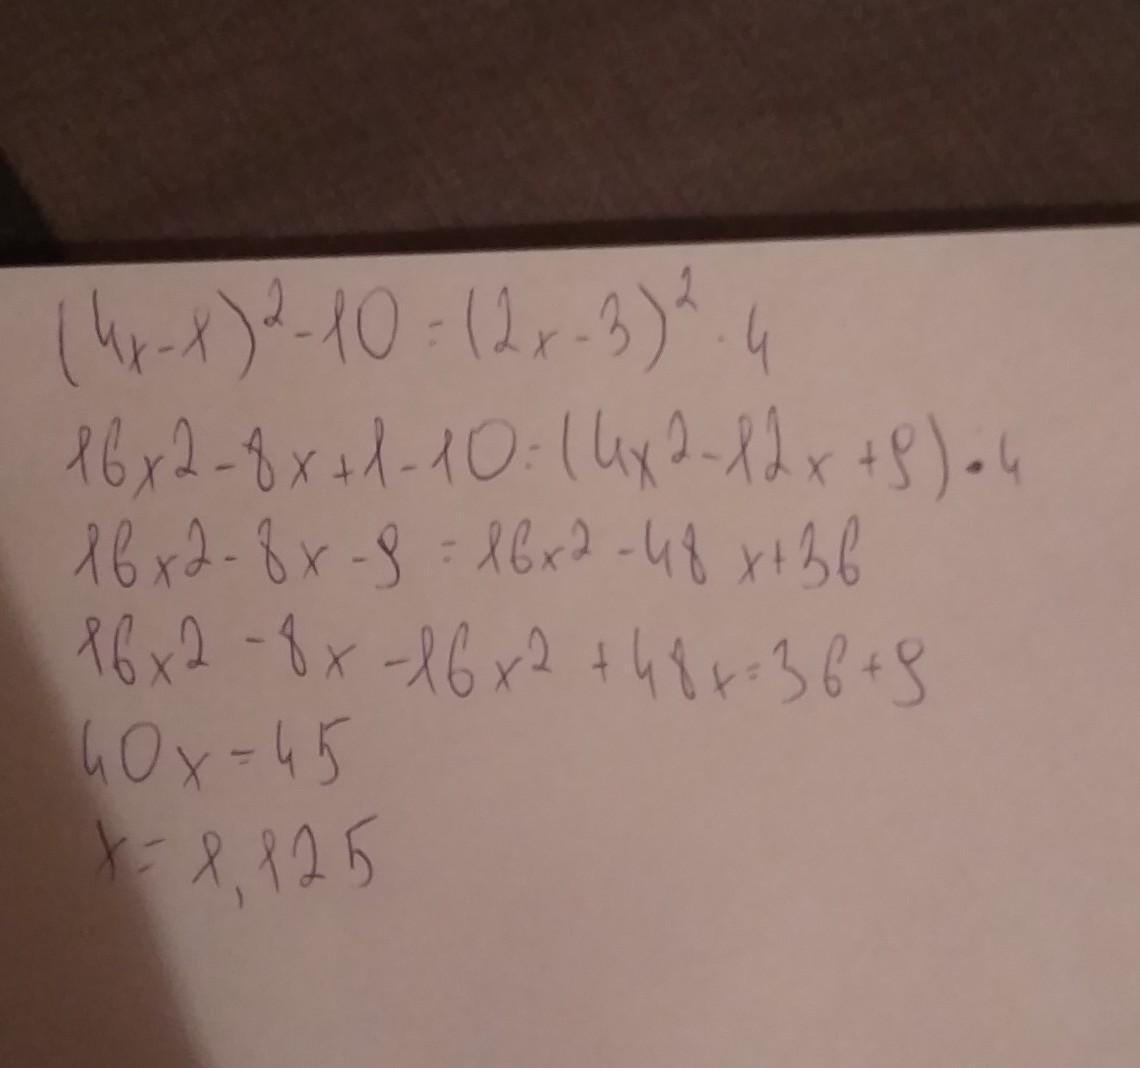 (4x-1)²-10=(2x-3)²·4
16x2-8x+1-10=(4x2-12x+9)·4
16x2-8x-9=16x2-48x+36
16x2-8x-16x2+48x=36+9
40x=45
x=1,125